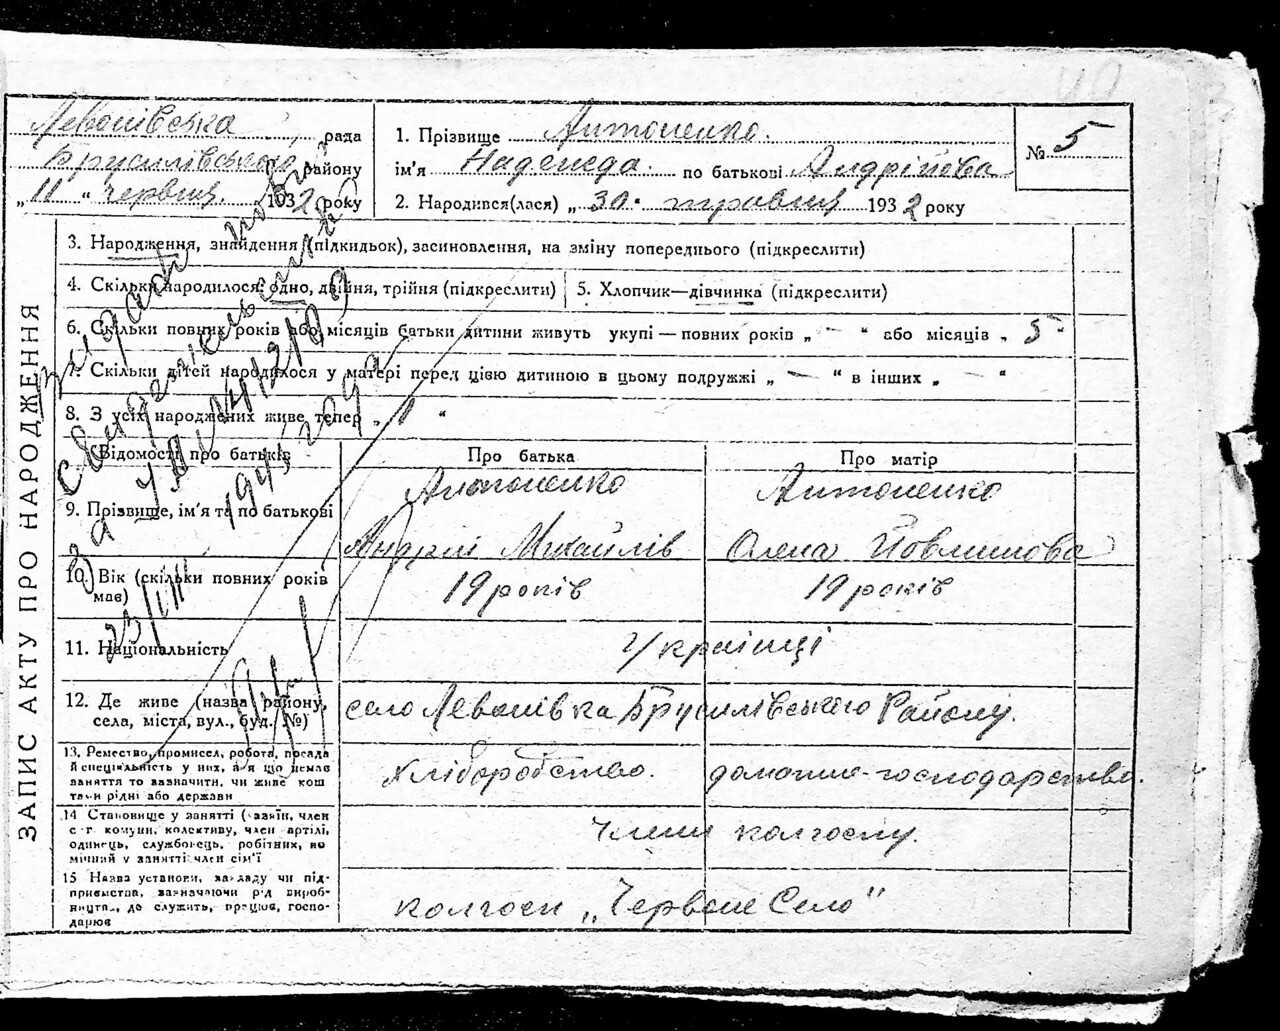 Левонівська рада
Брусилівського району
„ 11 “ червня 1932 року
1. Прізвище Антоненко.
ім'я Надежда. по батькові Андріївова
2. Народився(лася) „ 30. травня 1932 року
№ 5
ЗАПИС АКТУ ПРО НАРОДЖЕННЯ
3. Народження, знайдення (підкидьок), засиновлення, на зміну попереднього (підкреслити)
4. Скільки народилося: одно, двійня, трійня (підкреслити)
5. Хлопчик—дівчинка (підкреслити)
6. Скільки повних років або місяців батьки дитини живуть укупі — повних років „ — “ або місяців „ 5 “
7. Скільки дітей народилося у матері перед цією дитиною в цьому подружжі „ — “ в інших „ — “
8. З усіх народжених живе тепер „ 1 “
Відомості про батьків
Про батька
Про матір
9. Прізвище, ім'я та по батькові
Антоненко
Андрій Михайлів
Антоненко
Олена
10. Вік (скільки повних років має)
19 років
19 років
11. Національність
Українці
12. Де живе (назва району, села, міста, вул., буд. №)
село Левонівка Брусилівського Району.
13. Ремество, промисел, робота, посада й спеціяльність у них, а я що немає заняття то зазначити, чи живе кош тами рідні або держави
Хліборобство.
домашнє-господарство.
14 Становище у занятті (хазяїн, член с.-г. комуни, колективу, член артілі, одинець, службовець, робітник, помічний у занятті член сім'ї
Члени колгоспу.
15 Назва установи, закладу чи підприємства, зазначаючи рід виробництва, де служить, працює, господарює
колгосп „Червоне Село"
свидетельство
1945 года